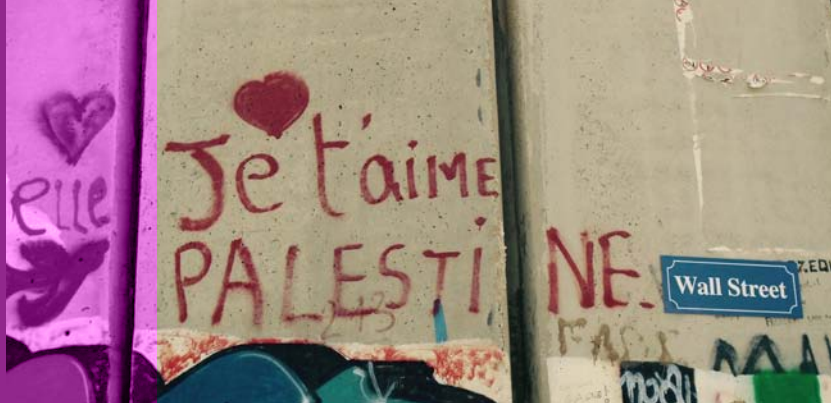 elle
Je t'aime
PALESTINE.
Wall Street
243